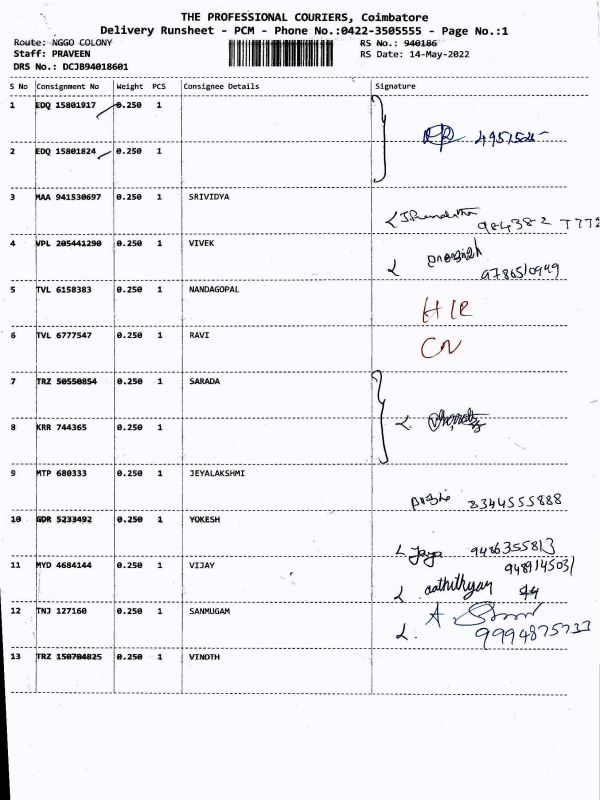 THE PROFESSIONAL COURIERS, Coimbatore
Delivery Runsheet - PCM - Phone No.:0422-3505555 - Page No.:1
Route: NGGO COLONY RS No.: 940186
Staff: PRAVEEN RS Date: 14-May-2022
DRS No.: DCJB94018601
S No Consignment No Weight PCS Consignee Details Signature
1 EDQ 15801917 0.250 1
2 EDQ 15801824 0.250 1
3 MAA 941530697 0.250 1 SRIVIDYA
984382 7772
4 VPL 205441290 0.250 1 VIVEK
9786510949
5 TVL 6158383 0.250 1 NANDAGOPAL
6 TVL 6777547 0.250 1 RAVI
CN
7 TRZ 50550854 0.250 1 SARADA
8 KRR 744365 0.250 1
9 MTP 680333 0.250 1 JEYALAKSHMI
8344555888
10 GDR 5233492 0.250 1 YOKESH
Jaya 9486355813
11 MYD 4684144 0.250 1 VIJAY
9489145031
aathithyan
12 TNJ 127160 0.250 1 SANMUGAM
9994875733
13 TRZ 150704825 0.250 1 VINOTH